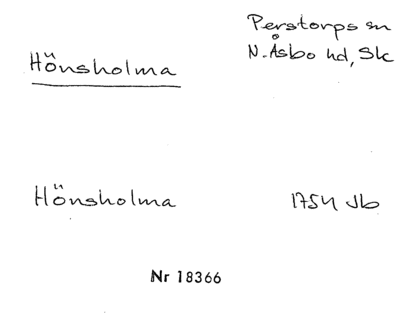 Hönsholma
Perstorps sn
N. Åsbo hd, Sk
Hönsholma
1754 Jb
Nr 18366